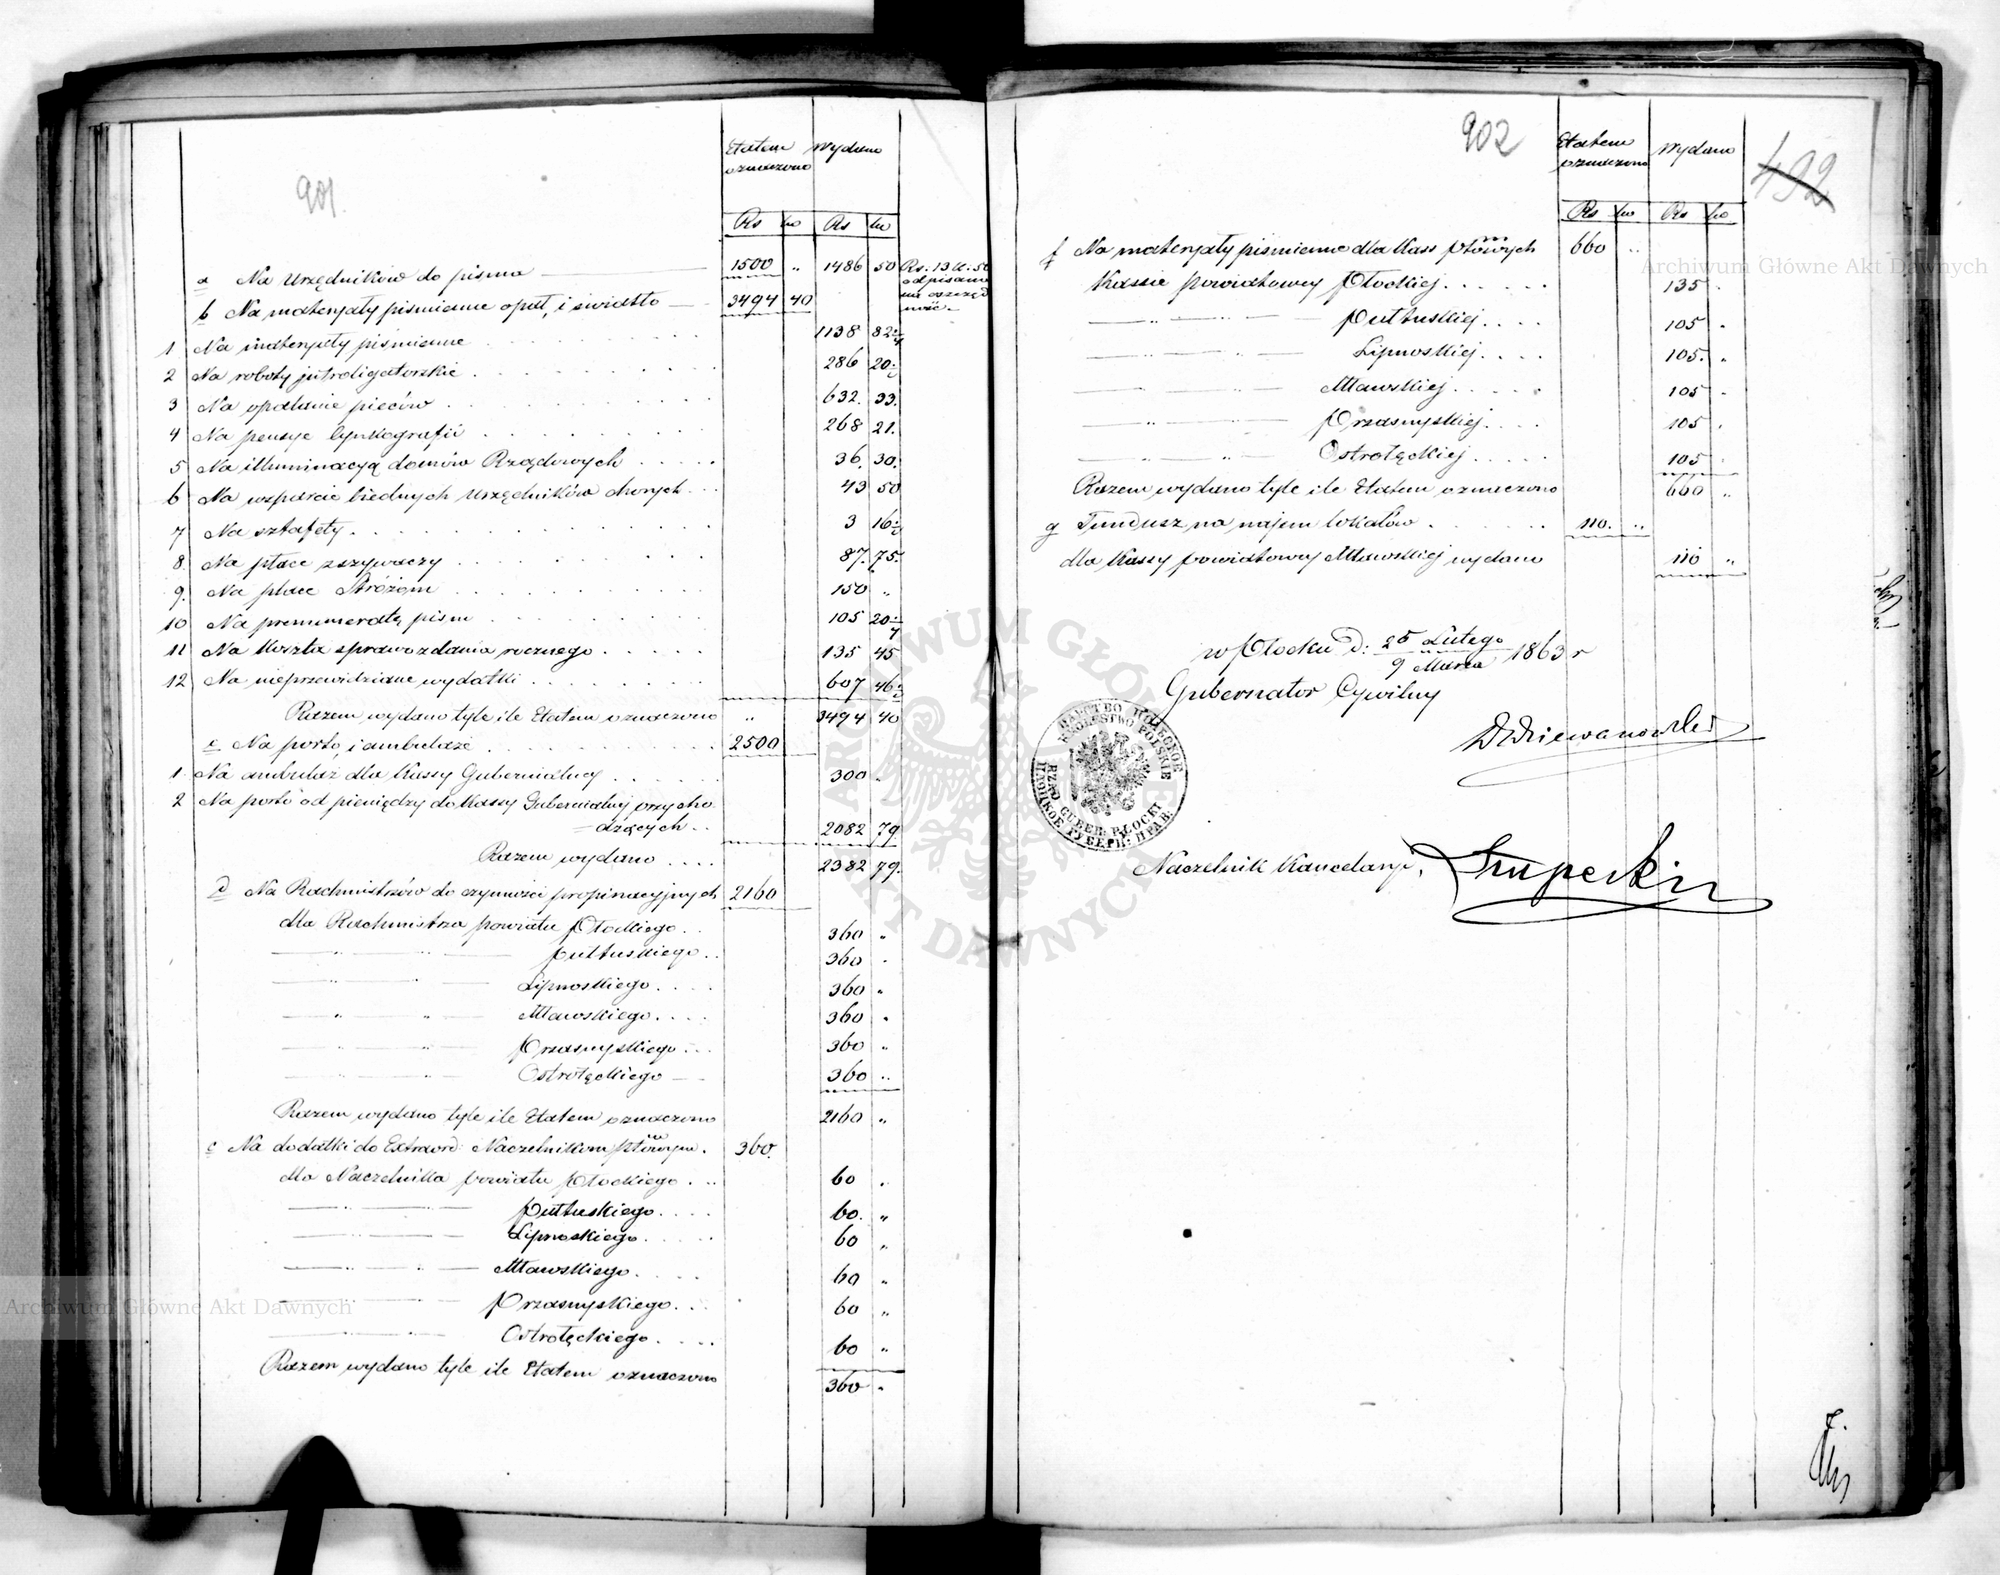 901.
Etatem oznaczono Wydano
Rs ko Rs ko
a Na Urzędników do pisma 1500 „ 1486 50 Rs: 13 k: 50
odpisano
na oszczęd
ność.
b Na materyały piśmienne opał, i światło 3494 40
1 Na materyały piśmienne 1138 82
2 Na roboty introligatorskie 286 20
3 Na opalanie pieców 632. 33.
4 Na pensye 268 21.
5 Na illuminacyą domów Rządowych 36. 30.
6 Na wsparcie biednych Urzędników chorych 43 50
7 Na sztafety 3 16
8. Na płace zszywaczy 87. 75.
9. Na płace Stróżom 150 „
10 Na prenumeratę pism 105 20
11 Na Koszta sprawozdania rocznego 135 45
12 Na nieprzewidziane wydatki 607 46
Razem wydano tyle ile Etatem oznaczono „ 3494 40
c Na porto, i ambulaże 2500
1. Na ambulaż dla Kassy Gubernialnej 300 „
2 Na porto od pieniędzy do Kassy Gubernialnej przycho
dzących 2082 79
Razem wydano 2382 79.
d Na Rachmistrzów do czynności propinacyjnych 2160
dla Rachmistrza powiatu Płockiego 360 „
— „ — „ — Pułtuskiego 360 „
— „ — „ — Lipnoskiego 360 „
— „ — „ — Mławskiego 360 „
— „ — „ — Przasnyskiego 360 „
— „ — „ — Ostrołęckiego 360 „
Razem wydano tyle ile Etatem oznaczono 2160 „
e Na dodatki do Extraord: Naczelnikom Ptowym 360.
dla Naczelnika powiatu Płockiego 60 „
— „ — „ — Pułtuskiego 60. „
— „ — „ — Lipnoskiego 60 „
— „ — „ — Mławskiego 60 „
— „ — „ — Przasnyskiego 60 „
— „ — „ — Ostrołęckiego 60 „
Razem wydano tyle ile Etatem oznaczono 360 „
902
492
Etatem oznaczono Wydano
Rs ko Rs ko
f Na materyały piśmienne dla Kass Ptowych 660 „
Kassie powiatowej Płockiej 135 „
— „ — „ — Pułtuskiej 105 „
— „ — „ — Lipnoskiej 105. „
— „ — „ — Mławskiej 105 „
— „ — „ — Przasnyskiej 105 „
— „ — „ — Ostrołęckiej 105 „
Razem wydano tyle ile Etatem oznaczono 660 „
g Fundusz na najem lokalów 110. „
dla Kassy powiatowej Mławskiej wydano 110 „
w Płocku d: 25 Lutego / 9 Marca 1863 r
Gubernator Cywilny
KRÓLESTWO POLSKIE
RZĄD GUBER: PŁOCKI
Naczelnik Kancelaryi,
Archiwum Główne Akt Dawnych
Archiwum Główne Akt Dawnych
ARCHIWUM GŁÓWNE AKT DAWNYCH